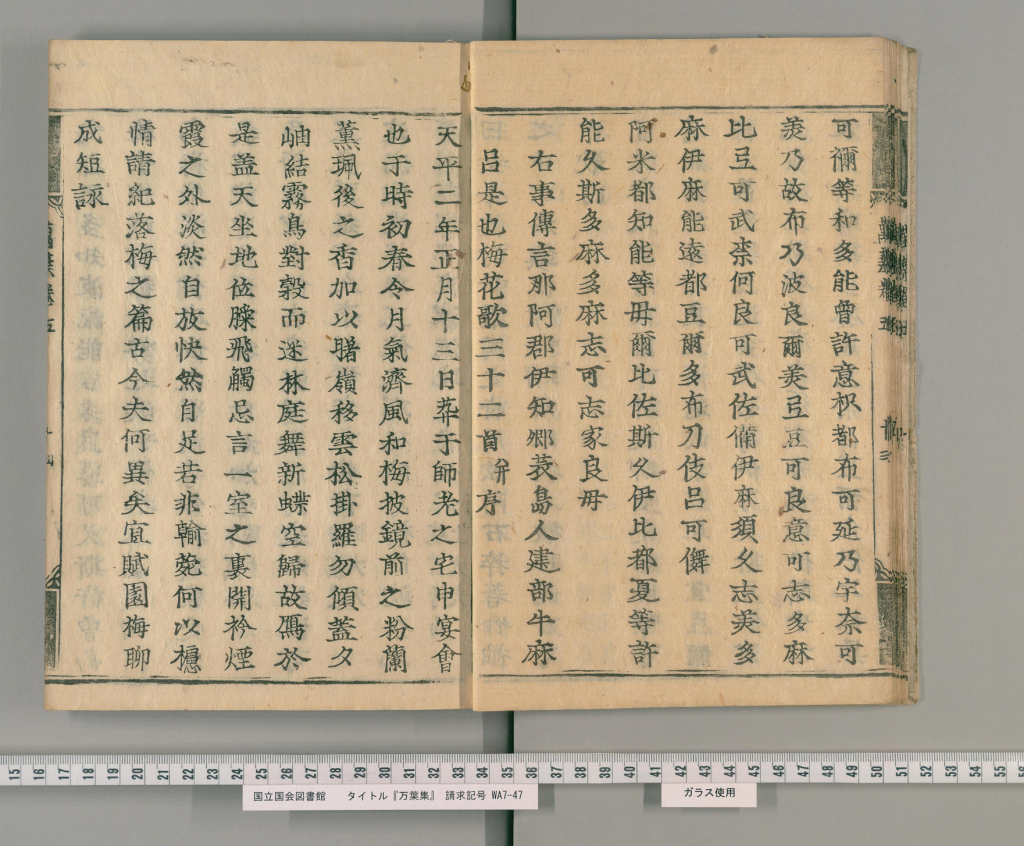 可禰等和多能曾許意枳都布可延乃宇奈可
美乃故布乃波良爾美弖豆可良意可志多麻
比弖可武奈何良可武佐備伊麻須久志美多
麻伊麻能遠都豆爾多布刀伎呂可儛
阿米都知能等毋爾比佐斯久伊比都夏等許
能久斯多麻多麻志可志家良毋
右事傳言那阿郡伊知郷蓑島人建部牛麻
呂是也梅花歌三十二首并序
天平二年正月十三日萃于師老之宅申宴會
也于時初春令月氣濟風和梅披鏡前之粉蘭
薫珮後之香加以曙嶺移雲松掛羅勿傾蓋夕
岫結霧鳥對縠而迷林庭舞新蝶空歸故鴈於
是盖天坐地促膝飛觴忘言一室之裏開衿煙
霞之外淡然自放快然自足若非翰苑何以攄
情請紀落梅之篇古今夫何異矣宜賦園梅聊
成短詠
15 16 17 18 19 20 21 22 23 24 25 26 27 28 29 30 31 32 33 34 35 36 37 38 39 40 41 42 43 44 45 46 47 48 49 50 51 52 53 54 55 56
国立国会図書館 タイトル『万葉集』 請求記号 WA7-47
ガラス使用